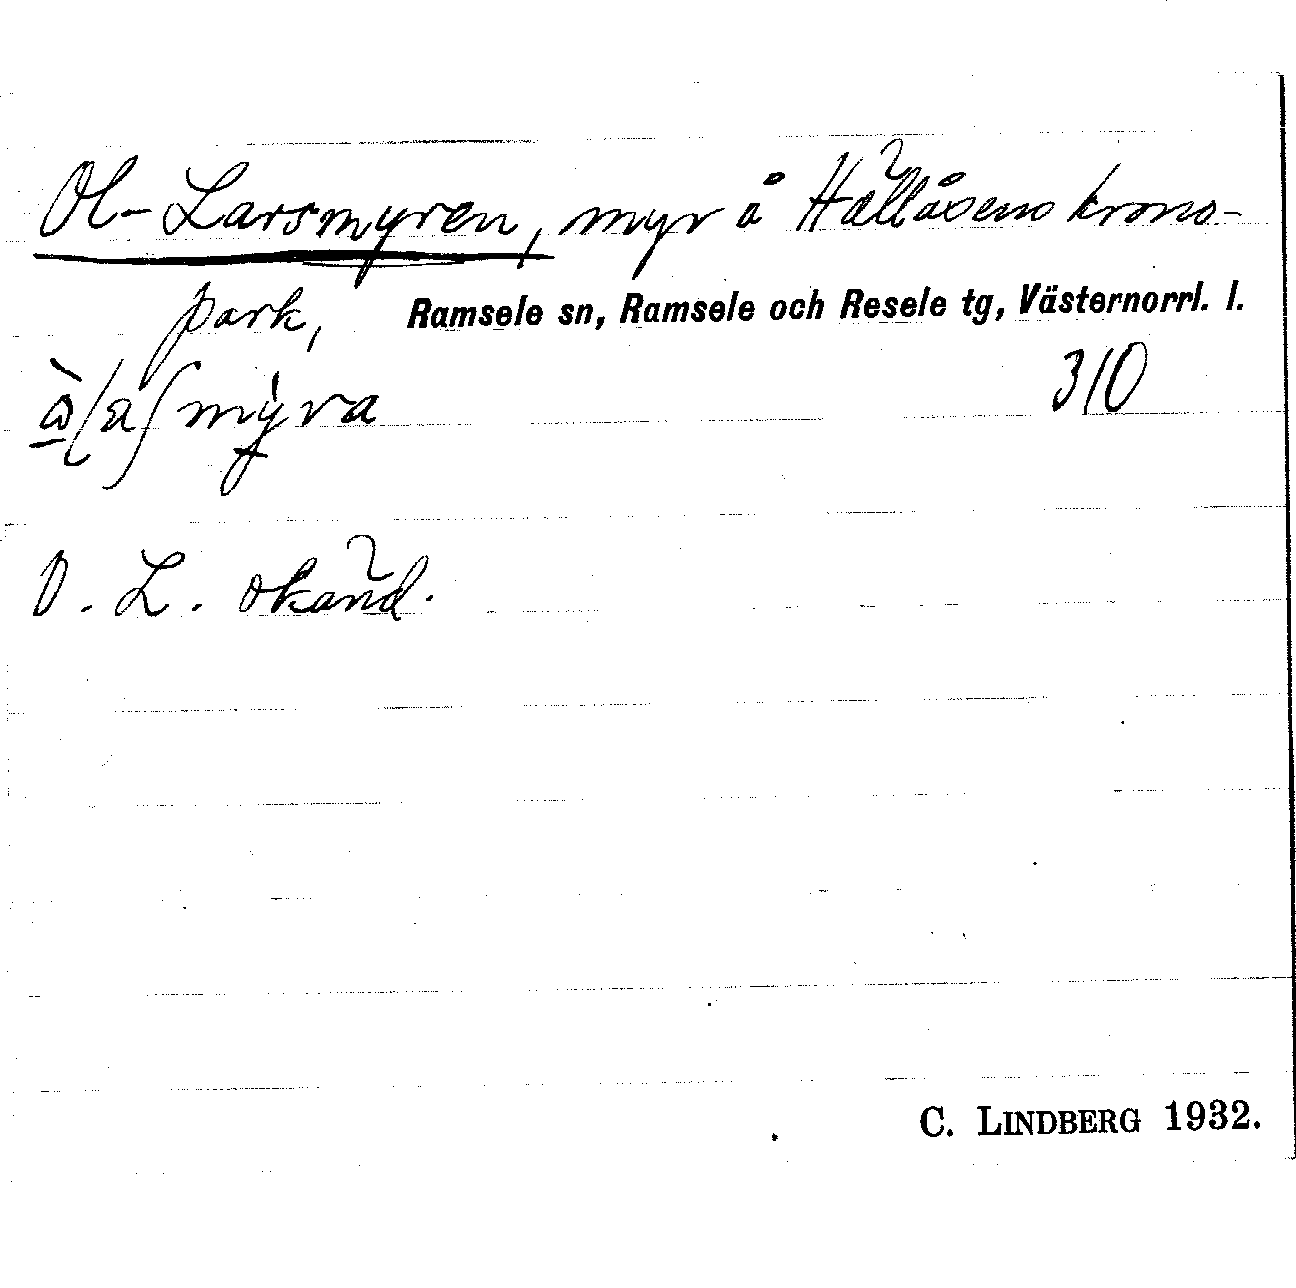 Ol-Larsmyren, myr å Hällåsens krono-
park, Ramsele sn, Ramsele och Resele tg, Västernorrl. l.
310
mýra
O. L. okänd.
C. LINDBERG 1932.